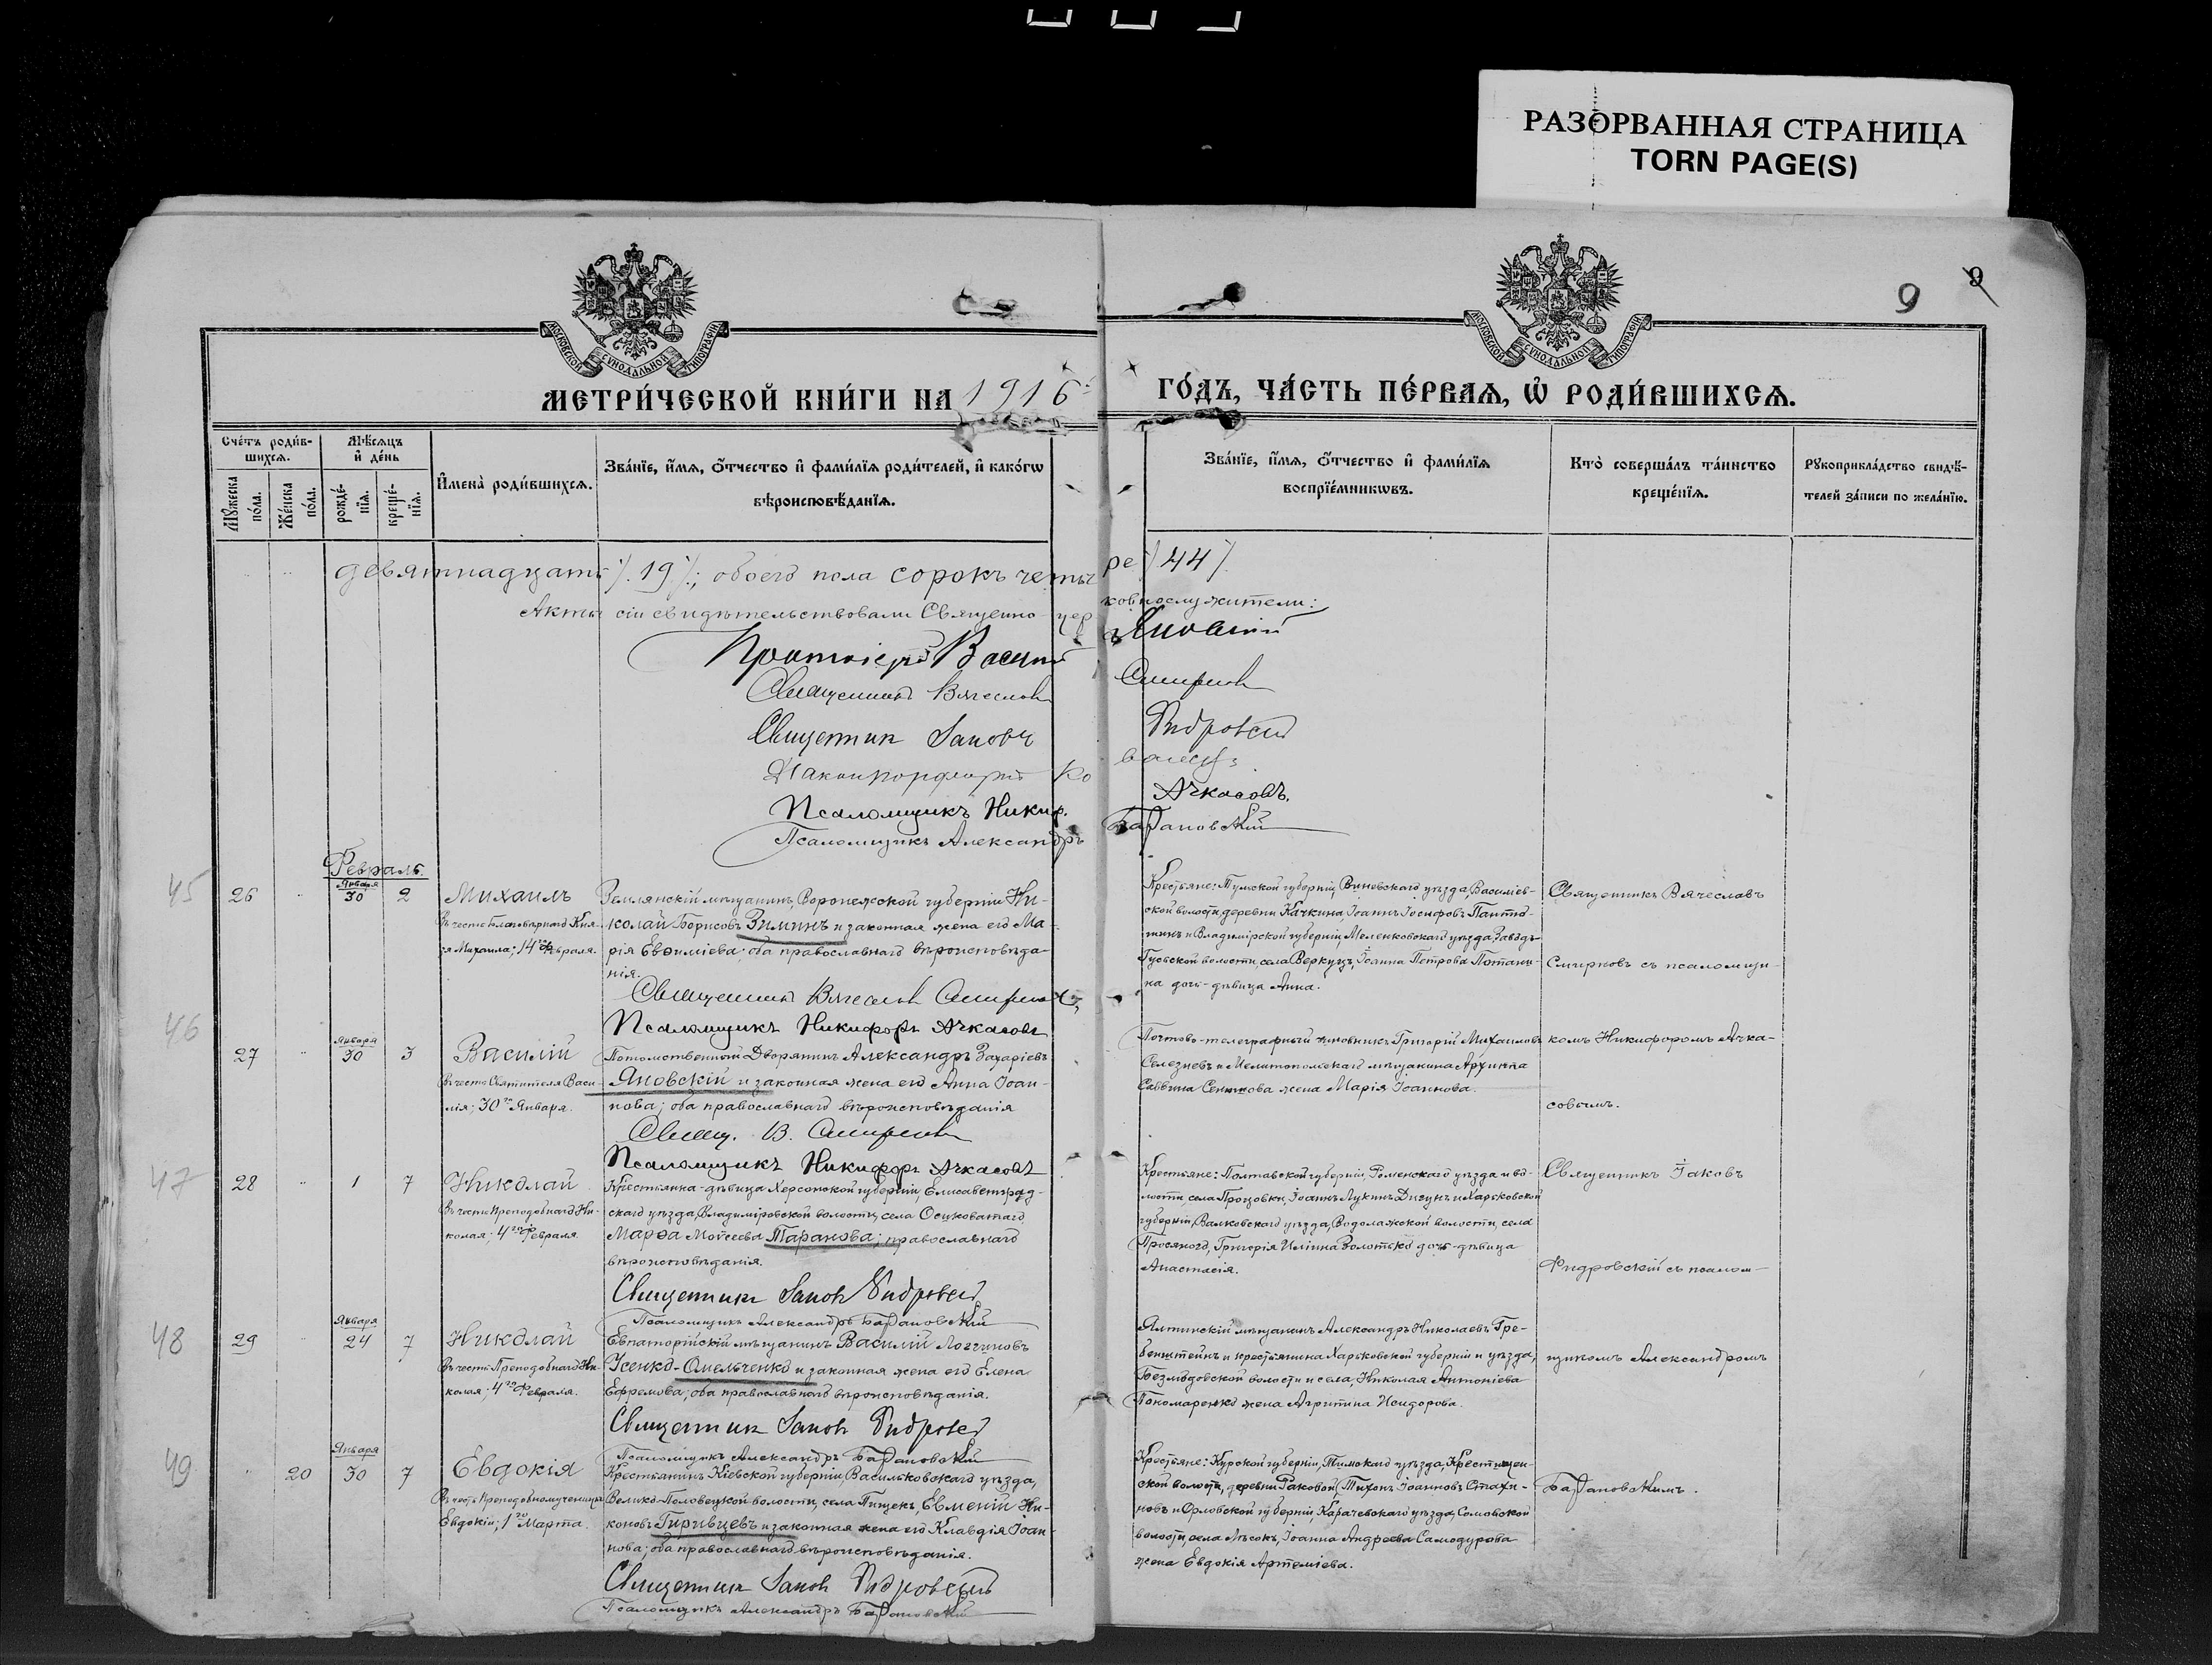 РАЗОРВАННАЯ СТРАНИЦА
TORN PAGE(S)
МОСКОВСКОЙ СѴНОДАЛЬНОЙ ТИПОГРАФІИ
МОСКОВСКОЙ СѴНОДАЛЬНОЙ ТИПОГРАФІИ
9 9
МЕТРИ́ЧЕСКОЙ КНИ́ГИ НА 1916 ГО́ДЪ, ЧА́СТЬ ПЕ́РВАѦ, Ѡ҆ РОДИ́ВШИХСѦ.
Сче́тъ роди́в-
шихсѧ.
Мꙋ́жеска по́ла.
Же́нска по́ла.
Мѣ́сѧцъ
и҆ де́нь
рожде́-
нїѧ.
креще́-
нїѧ.
И҆мена̀ роди́вшихсѧ.
Зва́нїе, и҆́мѧ, ѻ҆́тчество и҆ фами́лїѧ роди́телей, и҆ како́гѡ
вѣроисповѣ́данїѧ.
Зва́нїе, и҆́мѧ, ѻ҆́тчество и҆ фами́лїѧ
воспрїе́мникѡвъ.
Кто̀ соверша́лъ та́инство
креще́нїѧ.
Рꙋкоприкла́дство свидѣ́-
телей за́писи по жела́нїю.
девятнадцать /.19./; обоего пола сорокъ четыре /44/
Акты сіи свидѣтельствовали Священно-церковнослужители:
Протоіерей Василій Яновскій
Священникъ Вячеславъ Смирновъ
Священник Іаковъ Фидровскій
Псаломщикъ Никиф. Ачкасовъ.
Псаломщикъ Александръ Барановскій
Февраль.
45
26
Января
30
2
Михаилъ
Въ честь Благовѣрнаго Кня-
зя Михаила; 14го Февраля.
Землянскій мѣщанинъ, Воронежской губерніи Ни-
колай Борисовъ Зиминъ и законная жена его Ма-
рія Евѳиміева; оба православнаго вѣроисповѣда-
нія.
Священникъ Вячеславъ Смирновъ
Псаломщикъ Никифоръ Ачкасовъ
Крестьяне: Тульской губерніи, Веневскаго уѣзда, Василіев-
ской волости, деревни Качкина, Іоаннъ Іосифовъ
и Владимірской губерніи, Меленковскаго уѣзда, Заводъ-
Гусьской волости, села Веркуцъ, Іоанна Петрова Потапи-
на дочь-дѣвица Анна.
Священникъ Вячеславъ
Смирновъ съ псаломщи-
46
27
Января
30
3
Василій
Въ честь Святителя Васи-
лія; 30го Января.
Потомственный Дворянинъ Александръ Захаріевъ
Яновскій и законная жена его Анна Іоан-
нова; оба православнаго вѣроисповѣданія
Свящ. В. Смирновъ
Псаломщикъ Никифоръ Ачкасовъ
Почтово-телеграфный чиновникъ Григорій Михаиловъ
Селезневъ и Мелитопольскаго мѣщанина Архиппа
Саввина Сенькова жена Марія Іоаннова.
комъ Никифоромъ Ачка-
совымъ.
47
28
1
7
Николай
Въ честь Преподобнаго Ни-
колая; 4го Февраля
Крестьянка-дѣвица Херсонской губерніи, Елисаветград-
скаго уѣзда, Владиміровской волости, села Осиковатаго
Марѳа Моисеева Таранова; православнаго
вѣроисповѣданія.
Священник Іаковъ Фидровскій
Псаломщикъ Александръ Барановскій
Крестьяне: Полтавской губерніи, Роменскаго уѣзда и во-
лости, села Процовки, Іоаннъ Лукинъ Дигунъ и Харьковской
губерніи, Валковскаго уѣзда, Водолажской волости, села
Просянаго, Григорія Иліина Золотько дочь-дѣвица
Анастасія.
Священникъ Іаковъ
Фидровскій съ псалом-
48
29
Января
24
7
Николай
Въ честь Преподобнаго Ни-
колая; 4го Февраля.
Евпаторійскій мѣщанинъ Василій Логгиновъ
Усенко-Омельченко и законная жена его Елена
Ефремова; оба православнаго вѣроисповѣданія.
Священник Іаковъ Фидровскій
Псаломщикъ Александръ Барановскій
Ялтинскій мѣщанинъ Александръ Николаевъ Гре-
бенштейнъ и крестьянина Харьковской губерніи и уѣзда,
Безлюдовской волости и села, Николая Антоніева
Пономаренко жена Агрипина Исидорова.
щикомъ Александромъ
49
20
Января
30
7
Евдокія
Въ честь Преподобномученицы
Евдокіи; 1го Марта.
Крестьянинъ Кіевской губерніи, Васильковскаго уѣзда,
Велико-Половецкой волости, села Пищекъ, Евменій Ни-
коновъ Гиривцевъ и законная жена его Клавдія Іоан-
нова; оба православнаго вѣроисповѣданія.
Священник Іаковъ Фидровскій
Псаломщикъ Александръ Барановскій
Крестьяне: Курской губерніи, Тимскаго уѣзда, Крестищен-
ской волости, деревни Раковой, Тихонъ Іоанновъ Стахи-
новъ и Орловской губерніи, Карачевскаго уѣзда, Самовской
волости, села Лѣсокъ, Іоанна Андреева Самодурова
жена Евдокія Артеміева.
Барановскимъ.